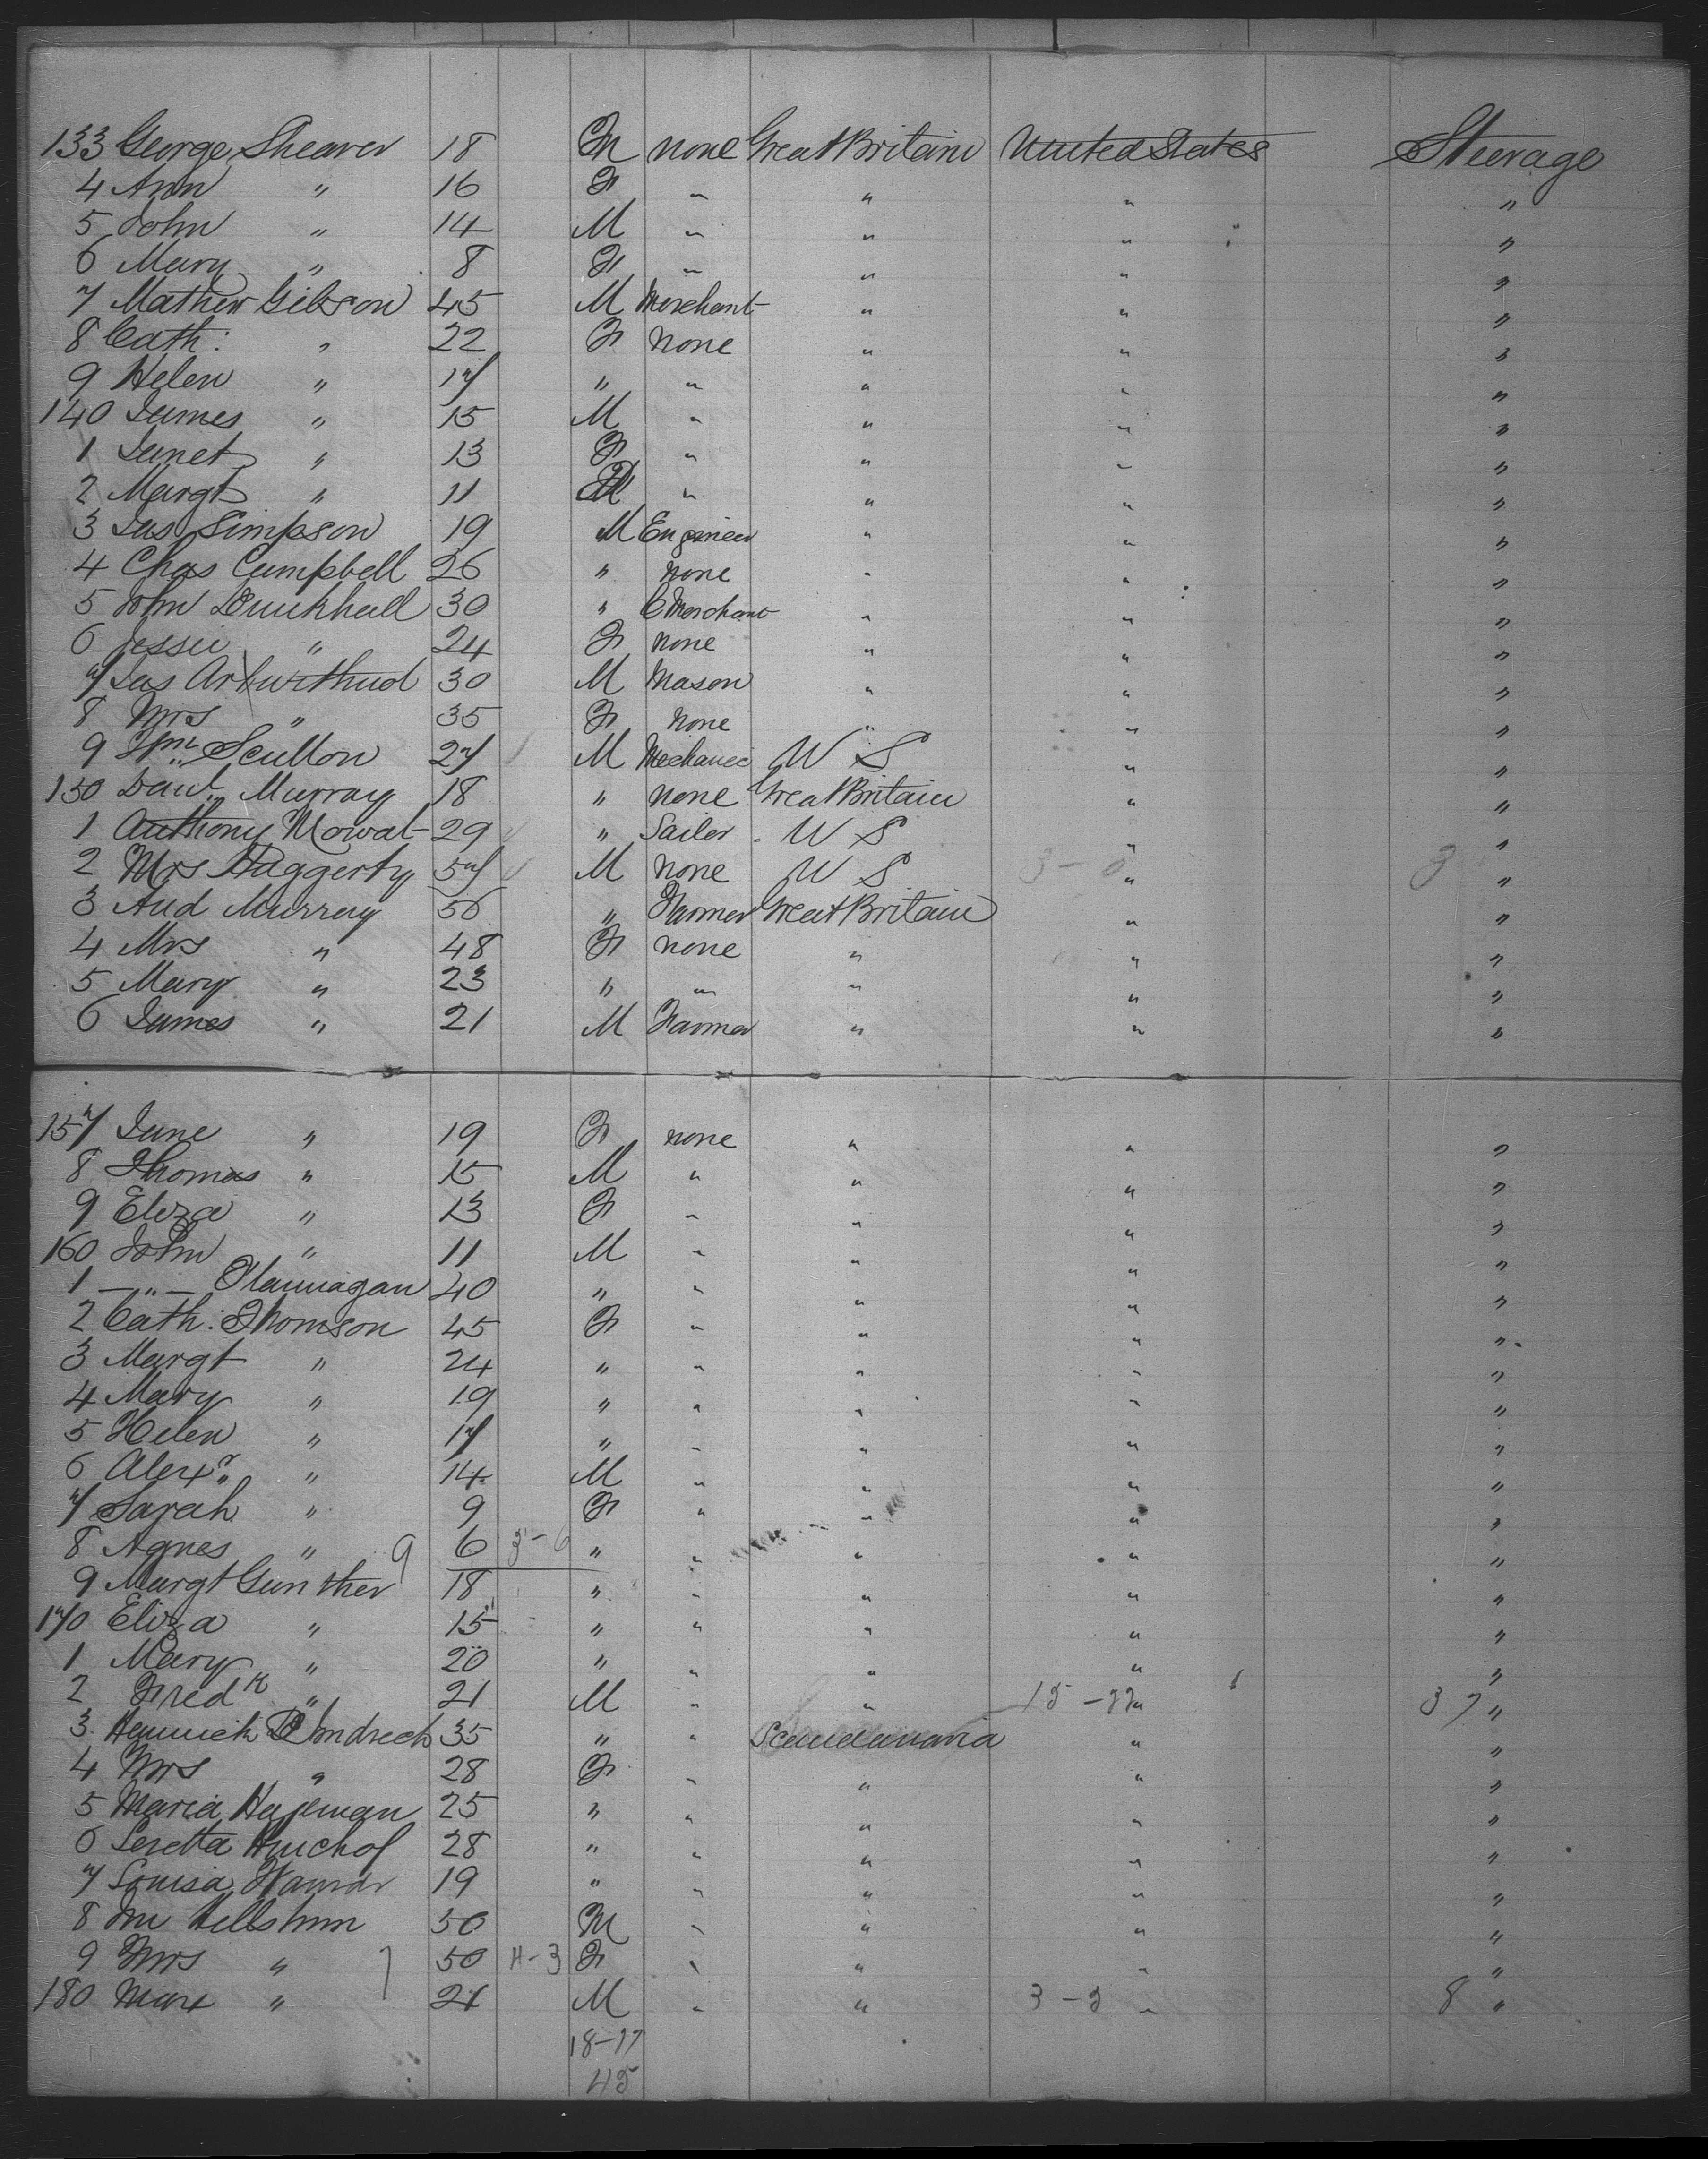 133 George Shearer 18 M none Great Britain United States Steerage
4 Ann " 16 F " " " "
5 John " 14 M " " " "
6 Mary " 8 F " " " "
7 Mathew Gibson 45 M Merchant " " "
8 Cath: " 22 F none " " "
9 Helen " 17 " " " " "
140 James " 15 M " " " "
1 Janet " 13 F " " " "
2 Margt " 11 " " " "
3 Jas Simpson 19 M Engineer " " "
4 Chas Campbell 26 " none " " "
5 John 30 " C Merchant " " "
6 Jessie " 24 F none " " "
7 Jas 30 M Mason " " "
8 Mrs " 35 F none " " "
9 Wm Scullon 27 M Mechanic U S " "
150 Danl. Murray 18 " none Great Britain " "
1 Anthony Mowat 29 " Sailor U S " "
2 Mrs Haggerty 57 M none U S 3 - 0 " 3 "
3 And Murray 50 " Farmer Great Britain " "
4 Mrs " 48 F none " " "
5 Mary " 23 " " " " "
6 James " 21 M Farmer " " "
157 Jane " 19 F none " " "
8 Thomas " 15 M " " " "
9 Eliza " 13 F " " " "
160 John " 11 M " " " "
1 — " — Flannagan 40 " " " " "
2 Cath: Thomson 45 F " " " "
3 Margt " 24 " " " " "
4 Mary " 19 " " " " "
5 Helen " 17 " " " " "
6 Alexr " 14 M " " " "
7 Sarah " 9 F " " " "
8 Agnes " 9 6 3-6 " " " " "
9 Margt Gunther 18 " " " " "
170 Eliza " 15 " " " " "
1 Mary " 20 " " " " "
2 Fredk " 21 M " " 15 - 22 " 37 "
3 35 " " Scandanavia " "
4 Mrs " 28 F " " " "
5 Maria Hageman 25 " " " " "
6 28 " " " " "
7 Louisa 19 " " " " "
8 50 M " " " "
9 Mrs " 7 50 4-3 F " " " "
180 Max " 21 M " " 3 - 2 " 8 "
18-17
45